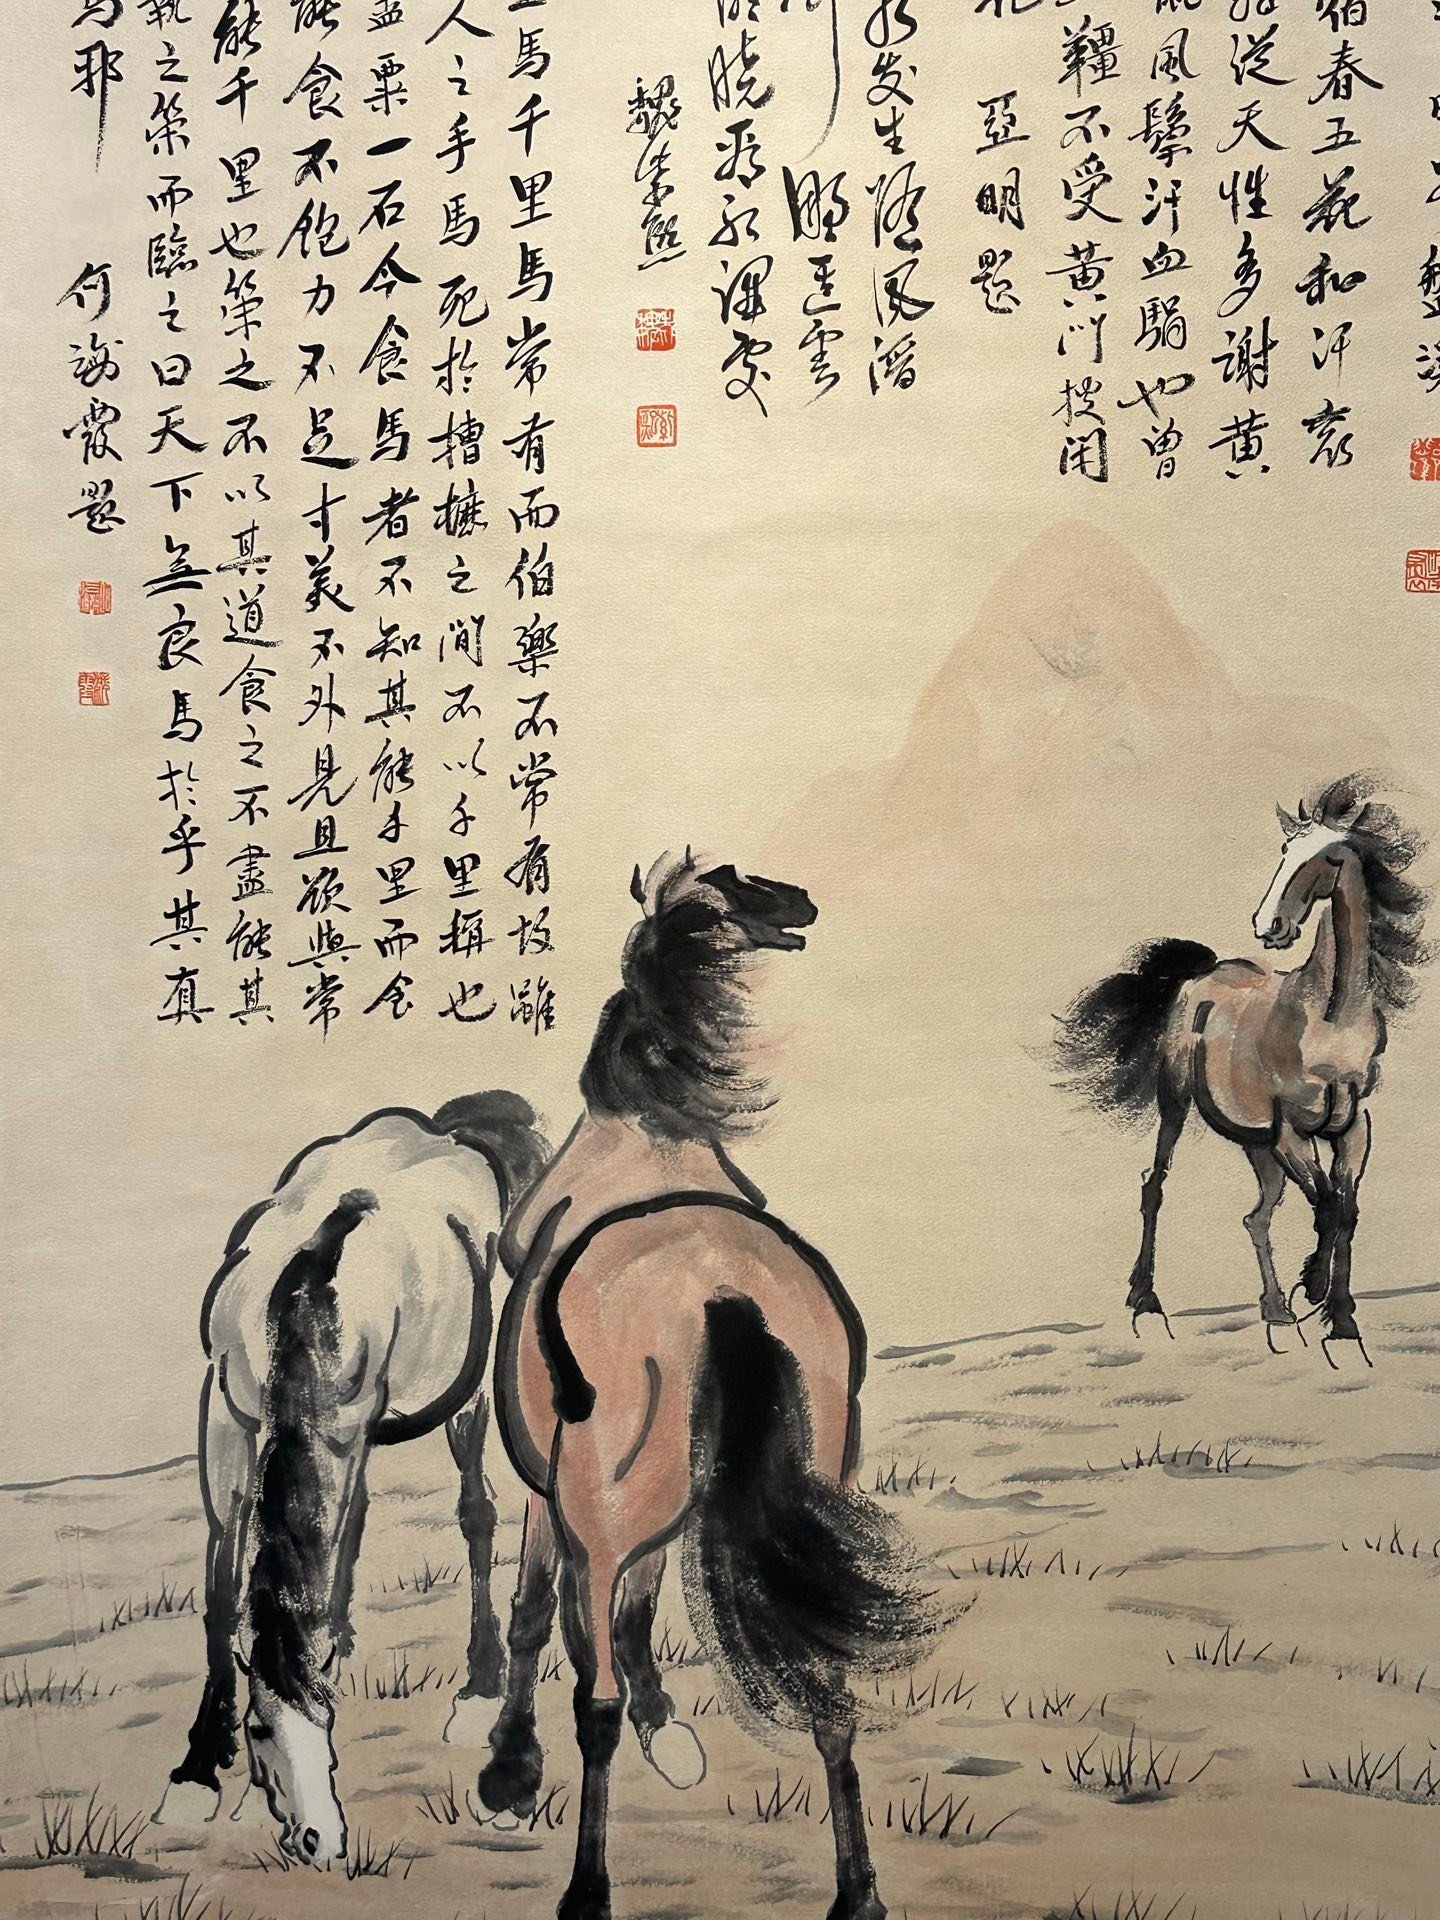 伯春五花和汗
從天性多謝黃
風鬃汗血驕也曾
韁不受黃門
亞明題
发生随風潛
野径雲
曉看红濕處
魏紫熙
馬千里馬常有而伯樂不常有故雖
人之手馬死於槽櫪之間不以千里稱也
盡粟一石今食馬者不知其能千里而食
能食不飽力不足才美不外見且欲與常
能千里也策之不以其道食之不盡能其
執之策而臨之曰天下無良馬於乎其真
馬耶
何海霞題